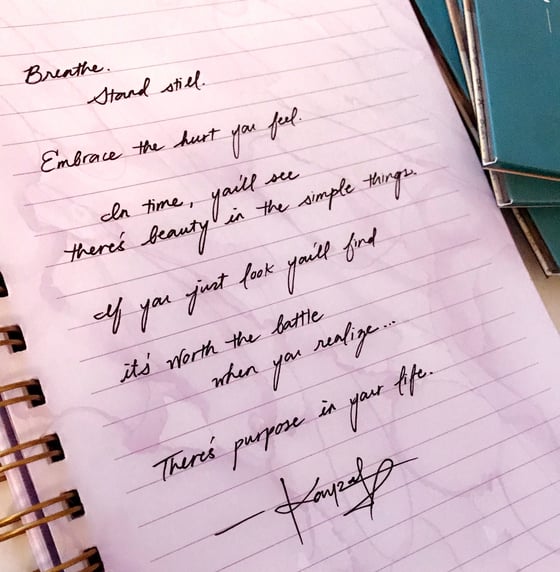 Breathe.
Stand still.
Embrace the hurt you feel.
In time, you'll see
there's beauty in the simple things.
If you just look you'll find
it's worth the battle
when you realize...
There's purpose in your life.